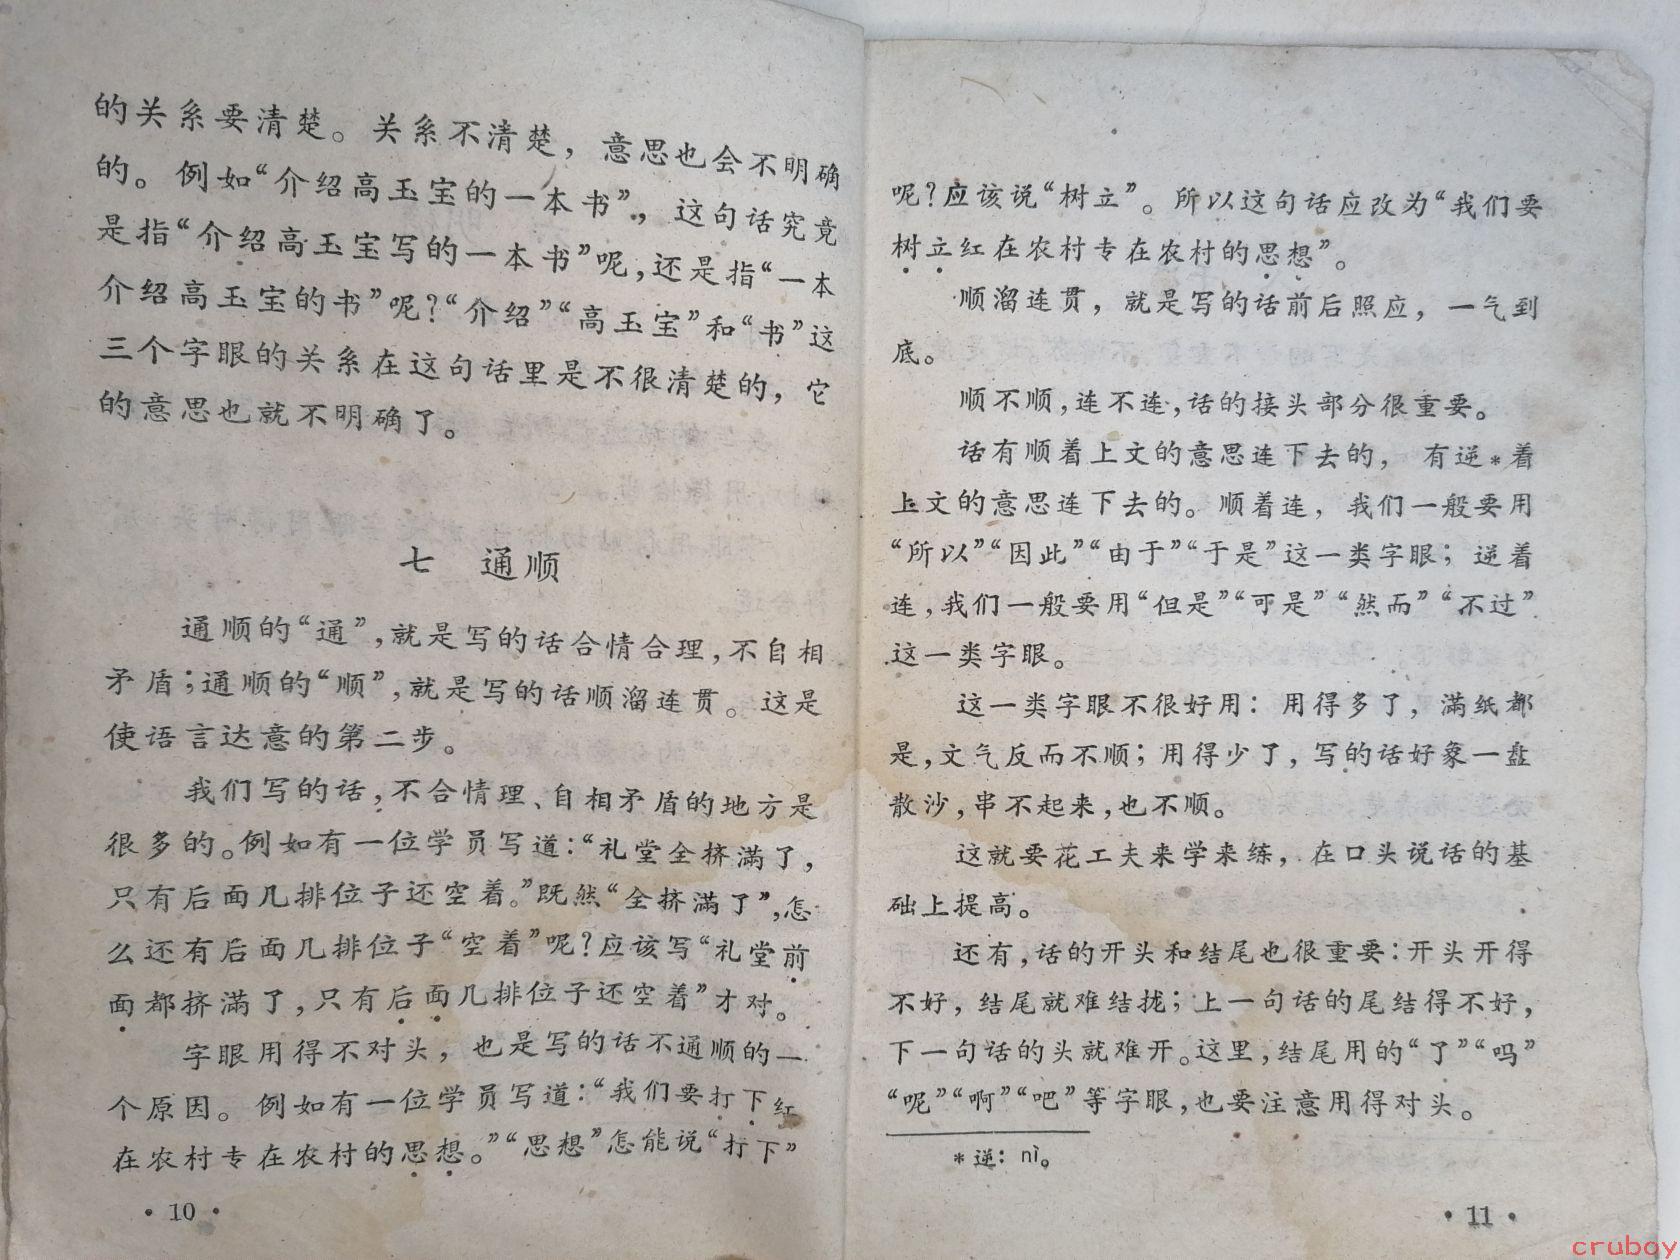 的关系要清楚。关系不清楚，意思也会不明确
的。例如“介绍高玉宝的一本书”，这句话究竟
是指“介绍高玉宝写的一本书”呢，还是指“一本
介绍高玉宝的书”呢？“介绍”“高玉宝”和“书”这
三个字眼的关系在这句话里是不很清楚的，它
的意思也就不明确了。
七 通顺
通顺的“通”，就是写的话合情合理，不自相
矛盾；通顺的“顺”，就是写的话顺溜连贯。这是
使语言达意的第二步。
我们写的话，不合情理、自相矛盾的地方是
很多的。例如有一位学员写道：“礼堂全挤满了，
只有后面几排位子还空着。”既然“全挤满了”，怎
么还有后面几排位子“空着”呢？应该写“礼堂前
面都挤满了，只有后面几排位子还空着”才对。
字眼用得不对头，也是写的话不通顺的一
个原因。例如有一位学员写道：“我们要打下红
在农村专在农村的思想。”“思想”怎能说“打下”
·10·
呢？应该说“树立”。所以这句话应改为“我们要
树立红在农村专在农村的思想”。
顺溜连贯，就是写的话前后照应，一气到
底。
顺不顺，连不连，话的接头部分很重要。
话有顺着上文的意思连下去的，有逆*着
上文的意思连下去的。顺着连，我们一般要用
“所以”“因此”“由于”“于是”这一类字眼；逆着
连，我们一般要用“但是”“可是”“然而”“不过”
这一类字眼。
这一类字眼不很好用：用得多了，满纸都
是，文气反而不顺；用得少了，写的话好象一盘
散沙，串不起来，也不顺。
这就要花工夫来学来练，在口头说话的基
础上提高。
还有，话的开头和结尾也很重要：开头开得
不好，结尾就难结拢；上一句话的尾结得不好，
下一句话的头就难开。这里，结尾用的“了”“吗”
“呢”“啊”“吧”等字眼，也要注意用得对头。
*逆：nì。
·11·
cruboy